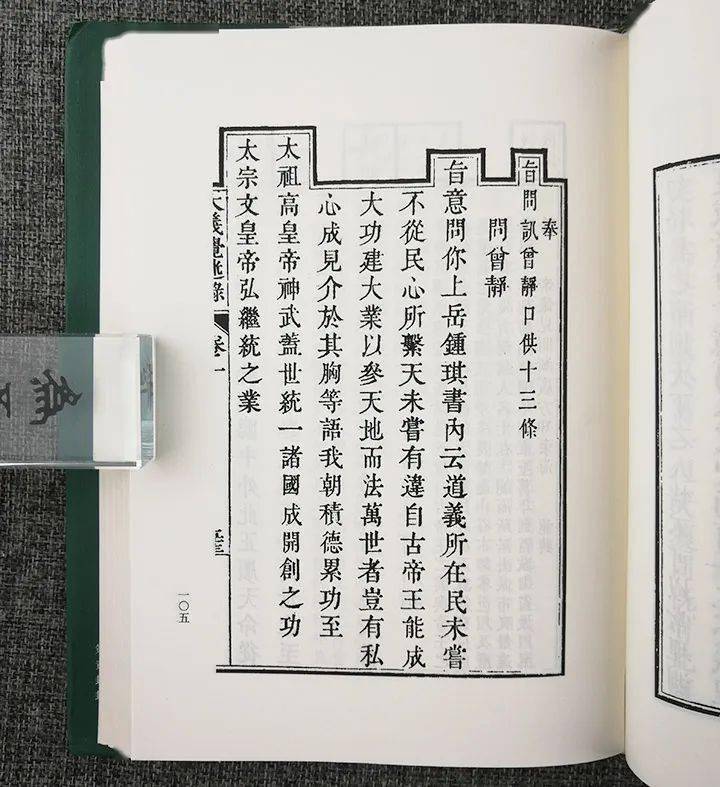 奉
旨問訊曾靜口供十三條
問曾靜
旨意問你上岳鍾琪書內云道義所在民未嘗
不從民心所繫天未嘗有違自古帝王能成
大功建大業以參天地而法萬世者豈有私
心成見介於其胸等語我朝積德累功至
太祖高皇帝神武蓋世統一諸國成開創之功
太宗文皇帝弘繼統之業
大義覺迷錄
卷一
一〇五